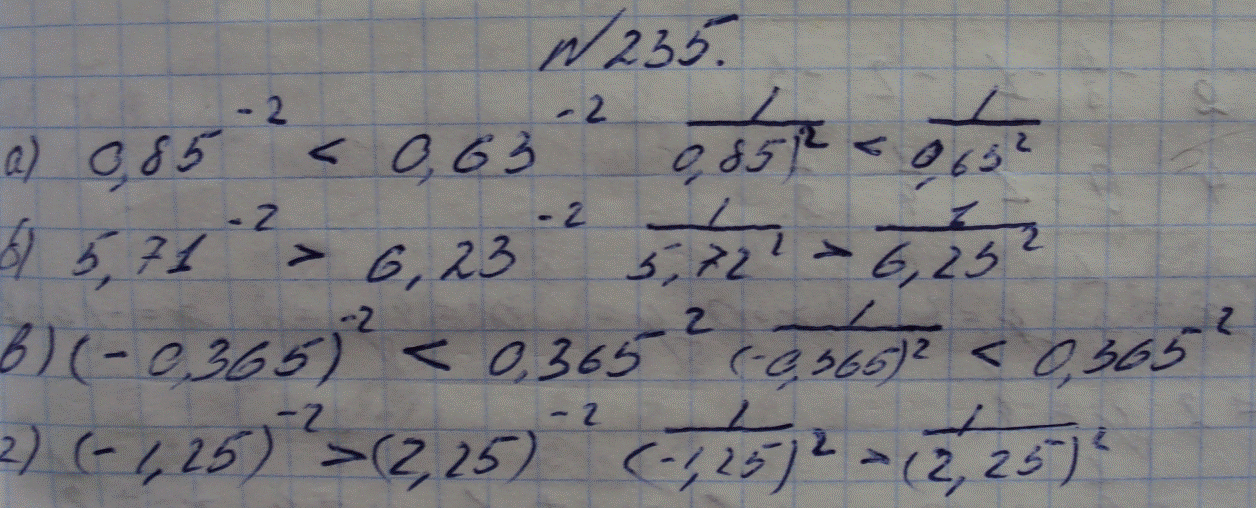 № 235.
а) 0,85⁻² < 0,63⁻² 1/0,85)² < 1/0,63²
б) 5,71⁻² > 6,23⁻² 1/5,72² > 1/6,25²
в) (-0,365)⁻² < 0,365⁻² 1/(-0,365)² < 0,365⁻²
г) (-1,25)⁻² > (2,25)⁻² 1/(-1,25)² > 1/(2,25)²